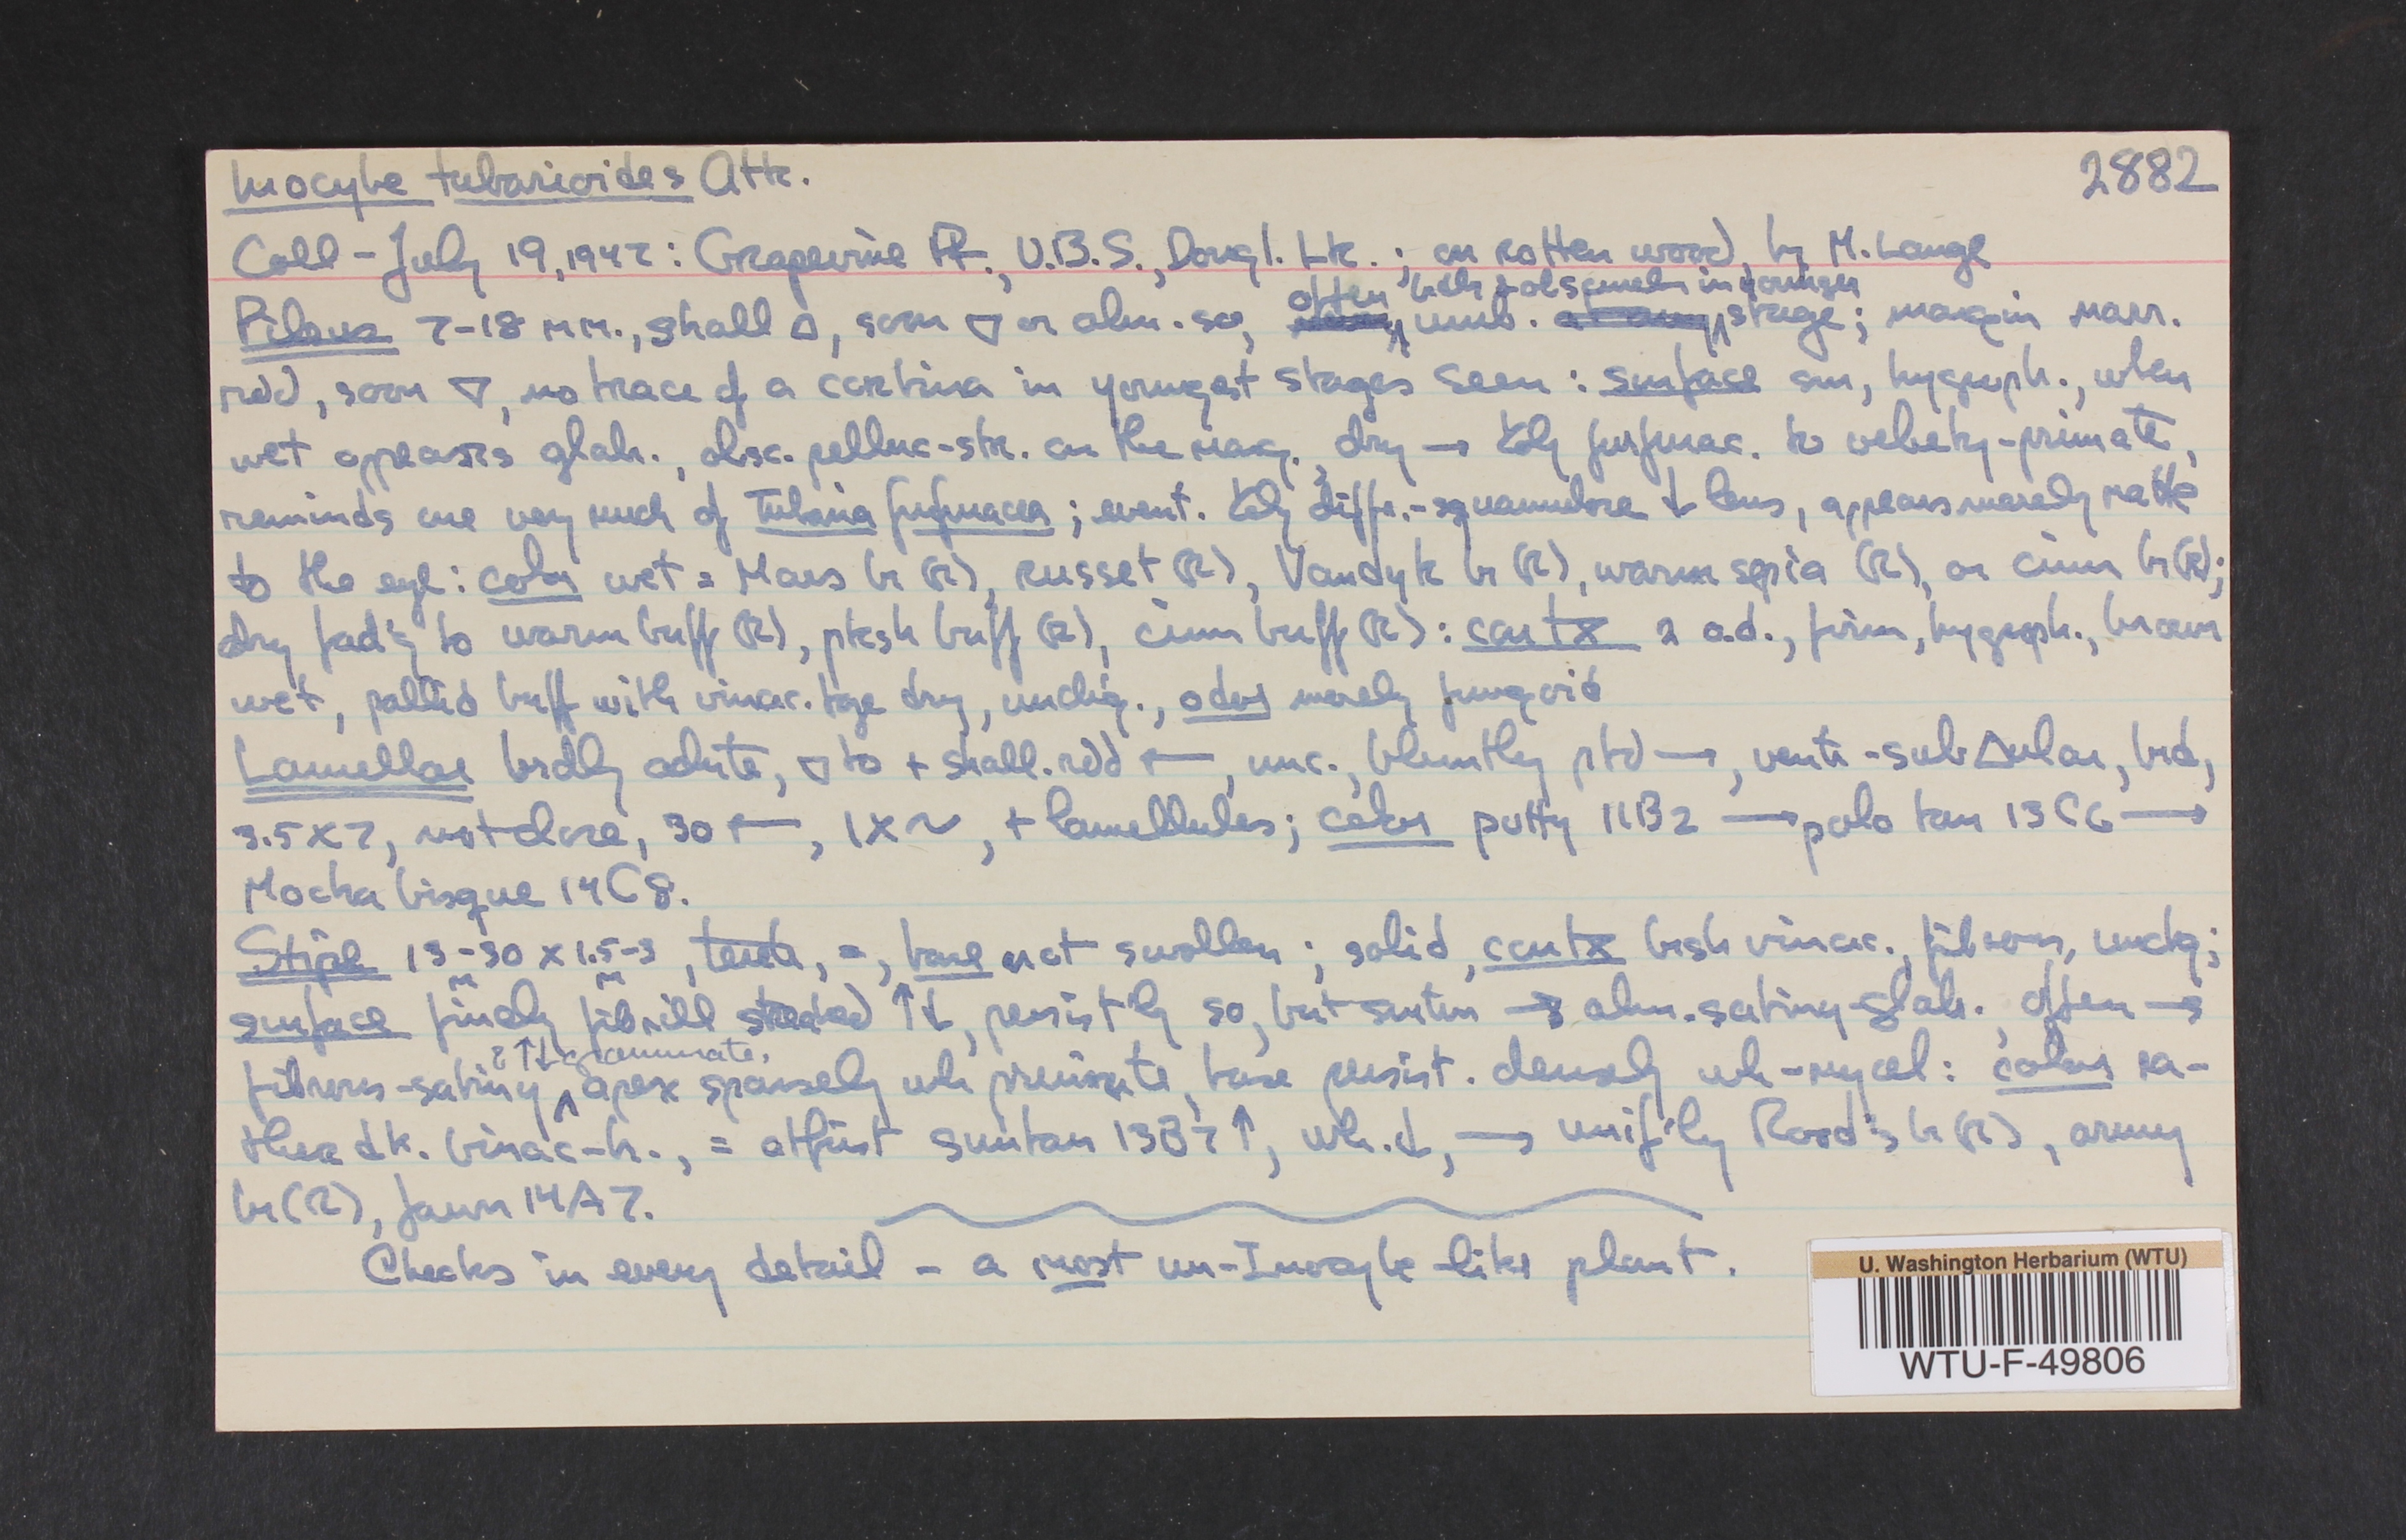 Inocybe tubarioides Atk. 2882
Coll - July 19, 1947: Grapevine Pt., U.B.S., Dougl. Lk.; on rotten wood, by M. Lange
often in younger
Pileus 7-18 mm., shall ▵, soon ▿ or alm. so, umb. stage; margin narr.
rdd, soon ▿, no trace of a cortina in youngest stages seen: surface sm, hygroph., when
wet appears glab., obsc. pelluc-str. on the marg., dry → furfurac. to velvety-pruinate,
reminds one very much of Tubaria furfuracea; event. diffr.-squamulose ↓ lens, appears merely matte
to the eye: color wet = Mars br (R), russet (R), Vandyk br (R), warm sepia (R), or cinn br (R);
dry fad'g to warm buff (R), pksh buff (R), cinn buff (R): contx a.d., firm, hygroph., brown
wet, pallid buff with vinac. tge dry, unchg., odor merely fungoid
Lamellae brdly adnate, ▿ to + shall. rdd ←, unc., bluntly ptd →, ventr-sub∆ular, brd,
3.5 x 7, not close, 30 ←, 1x~, + lamellules; color putty 11B2 → polo tan 13C6 →
Mocha bisque 14C8.
Stipe 13-30 x 1.5-3, =, base not swollen; solid, contx brsh vinac., fibrous, unchg;
mm
surface finely fibrill streaked ↑↓, persist'ly so, but → alm. satiny-glab., often →
? ↑↓ grammate,
fibrous-satiny ^ apex sparsely wh pruinate, base persist. densely wh-mycel: color ra-
ther dk. vinac-br., = at first suntan 13B7 ↑, wh. ↓, → unif'ly Rood's br (R), army
br (R), fawn 14A7.
Checks in every detail - a most un-Inocybe-like plant.
U. Washington Herbarium (WTU)
WTU-F-49806